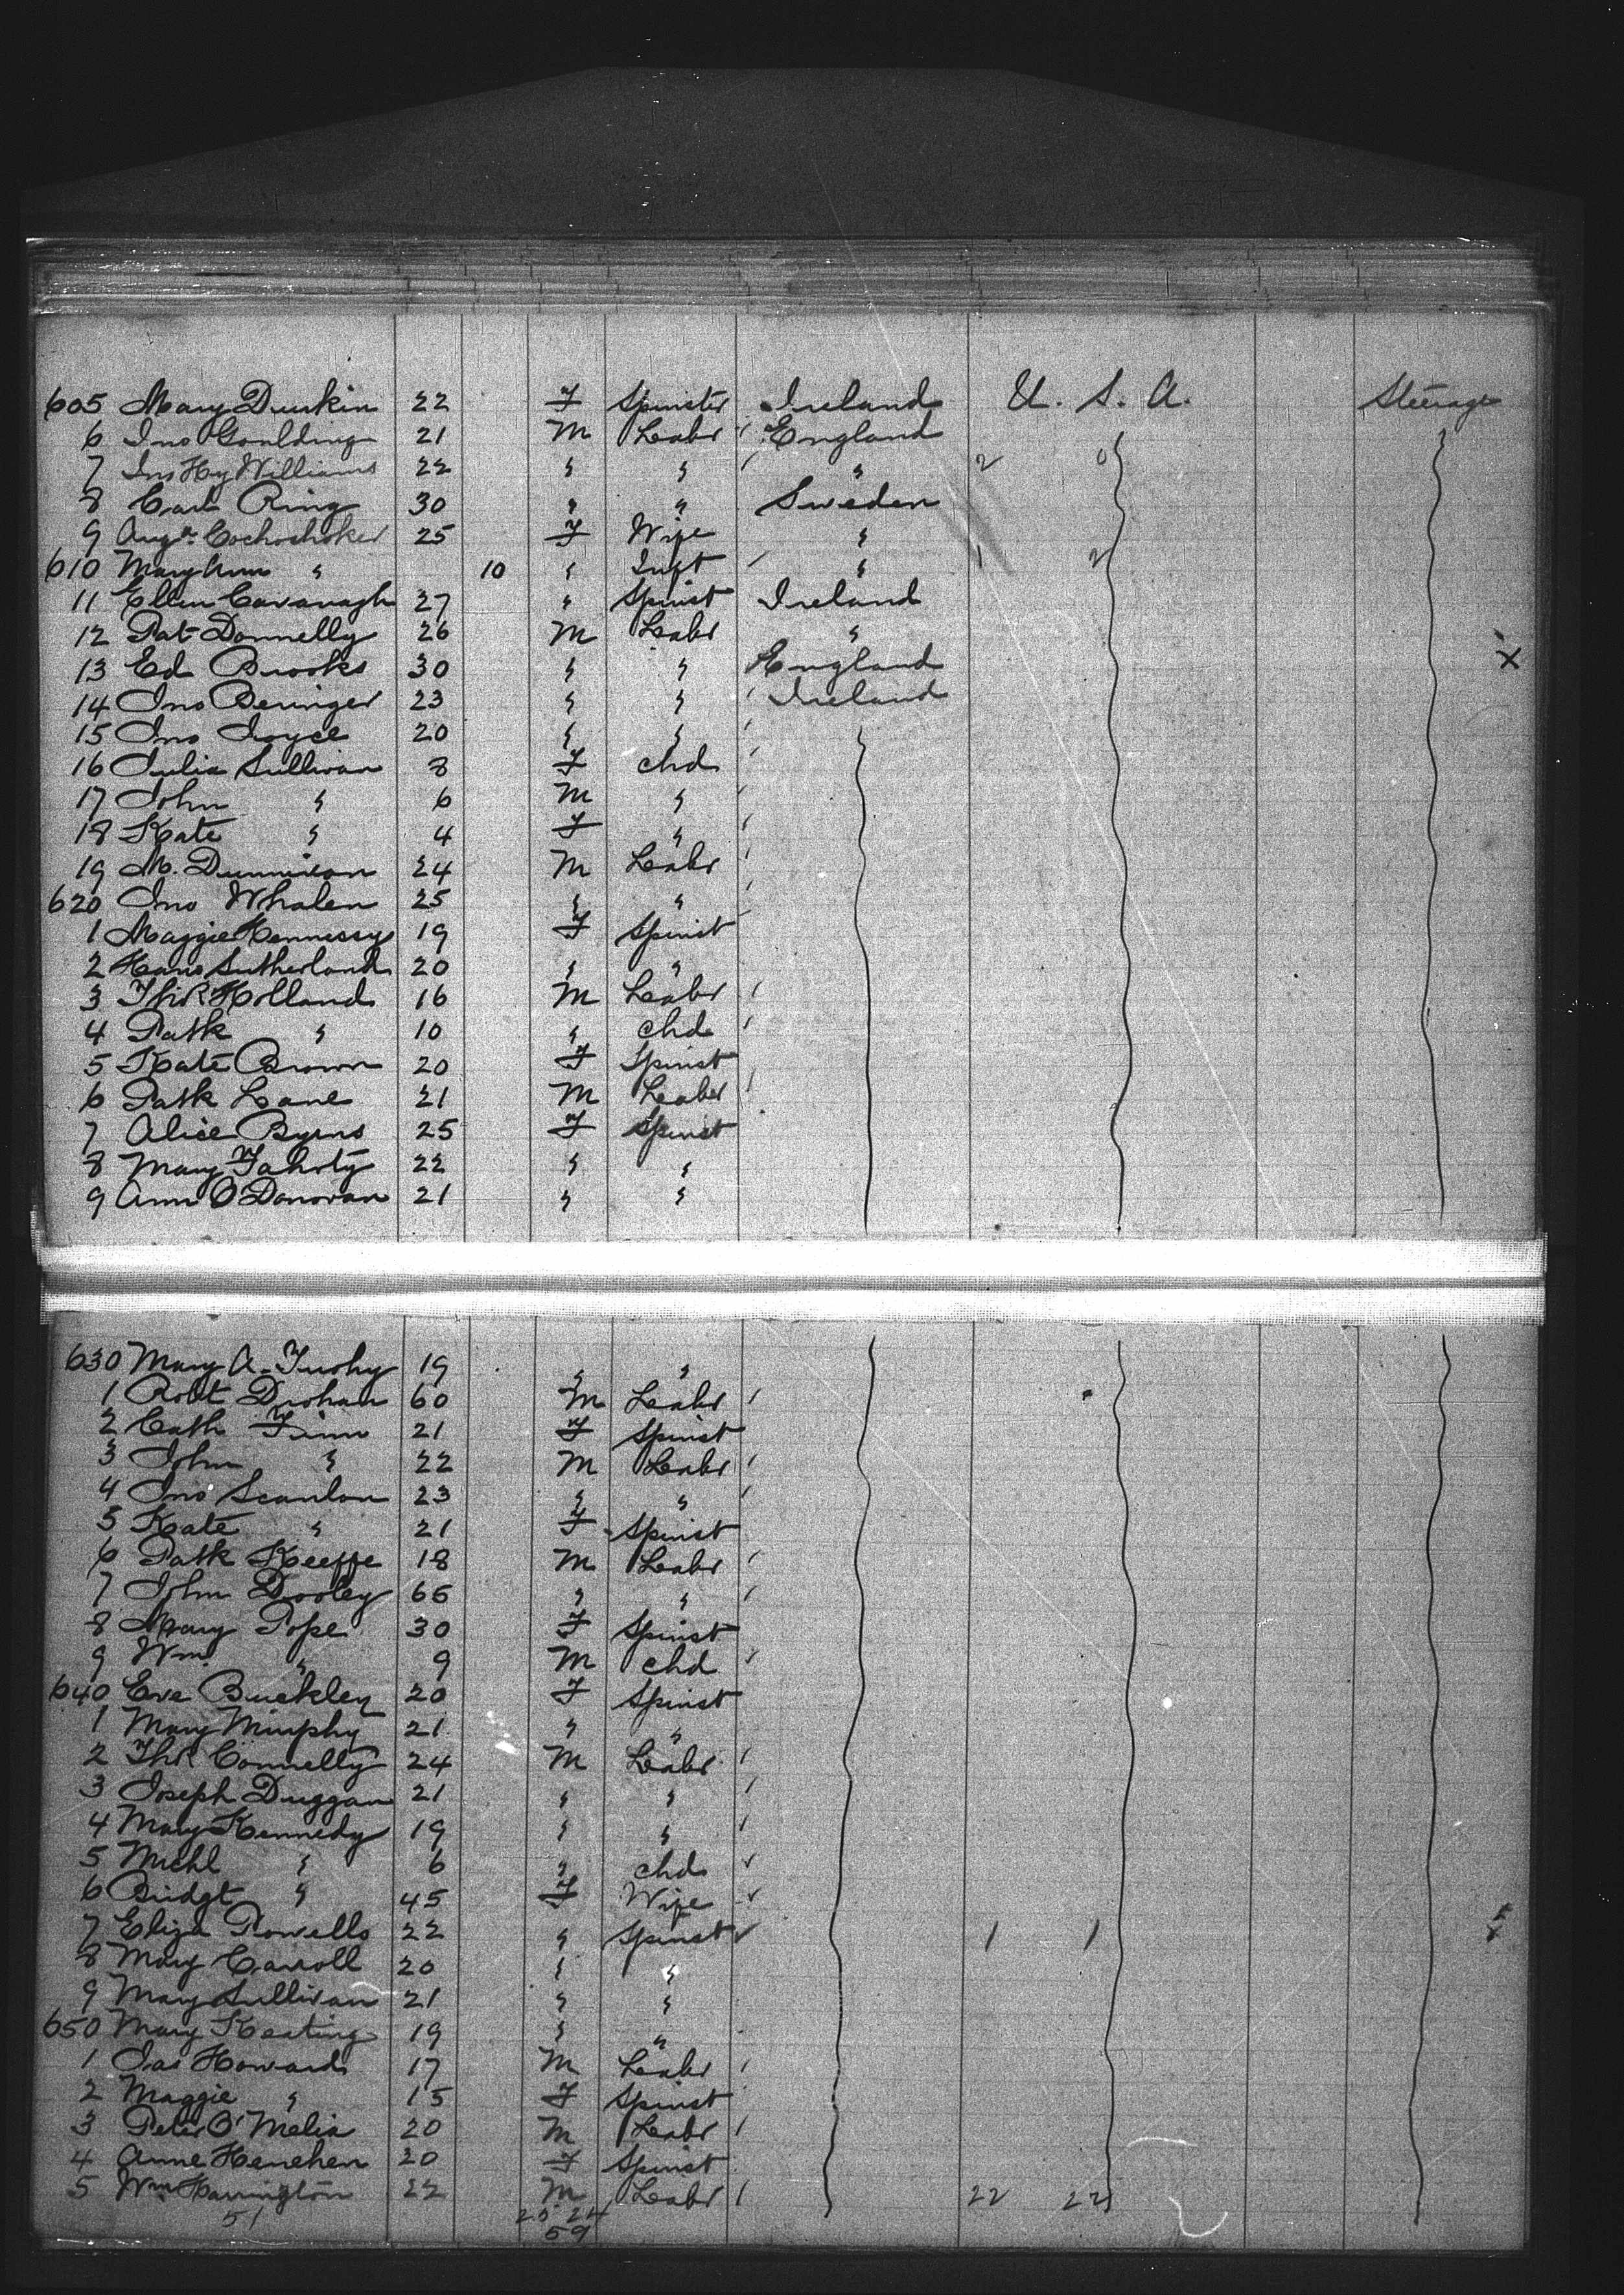 605 Mary Durkin 22 F Spinster Ireland U. S. A. Steerage
6 Jno Goulding 21 M Labr England
7 Jno Hy Williams 22 " " " 2 0
8 Carl Ring 30 " " Sweden
9 Augta Cochoshoker 25 F Wife "
610 Mary Ann " 10 " Inft " 1 2
11 Ellen Cavanagh 27 " Spinst Ireland
12 Pat Donnelly 26 M Labr "
13 Ed Brooks 30 " " England X
14 Jno Beringer 23 " " Ireland
15 Jno Joyce 20 " "
16 Julia Sullivan 8 F chd
17 John " 6 M "
18 Kate " 4 F "
19 M. 24 M Labr
620 Jno Whalen 25 " "
1 Maggie Hennessy 19 F Spinst
2 Hans Sutherland 20 " "
3 Thos Holland 16 M Labr
4 Patk " 10 " chd
5 Kate Brown 20 F Spinst
6 Patk Lane 21 M Labr
7 Alice Byrns 25 F Spinst
8 Mary Fahrty 22 " "
9 Ann O'Donovan 21 " "
630 Mary A. Tuohy 19 " "
1 Robt Drohan 60 M Labr
2 Cath Finn 21 F Spinst
3 John " 22 M Labr
4 Jno Scanlon 23 " "
5 Kate " 21 F Spinst
6 Patk Keeffe 18 M Labr
7 John Dooley 66 " "
8 Mary Pope 30 F Spinst
9 Wm " 9 M chd
640 Eve Buckley 20 F Spinst
1 Mary Murphy 21 " "
2 Thos Connelly 24 M Labr
3 Joseph Duggan 21 " "
4 Mary Kennedy 19 " "
5 Michl " 6 " chd
6 Bridgt " 45 F Wife
7 Eliza Powells 22 " Spinst 1 1
8 Mary Carroll 20 " "
9 Mary Sullivan 21 " "
650 Mary Keating 19 " "
1 Jas Howard 17 M Labr
2 Maggie " 15 F Spinst
3 Peter O'Melia 20 M Labr
4 Anne Henehen 20 F Spinst
5 Wm Harrington 22 M Labr 22 22
51
59